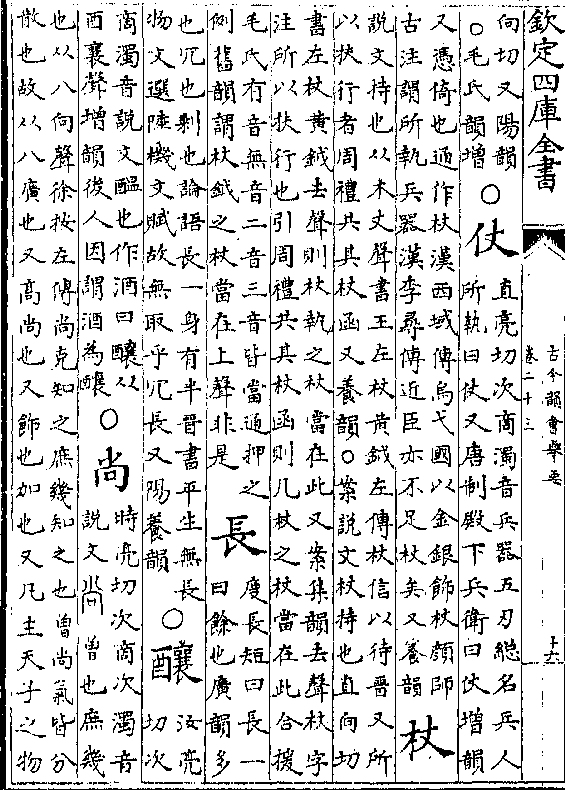 欽定四庫全書
古今韻會舉要
卷二十三
十六
向切又陽韻
○毛氏韻增
○仗
直亮切次商濁音兵器五刃總名兵人
所執曰仗又唐制殿下兵衛曰仗增韻
又憑倚也通作杖漢西域傳烏弋國以金銀飾杖顔師
古注謂所執兵器漢李尋傳近臣亦不足杖矣又養韻
杖
說文持也从木丈聲書王左杖黃鉞左傳杖信以待晉又所
以扶行者周禮共其杖函又養韻○案說文杖持也直向切
書左杖黃鉞去聲則杖執之杖當在此又案集韻去聲杖字
注所以扶行也引周禮共其杖函則几杖之杖當在此合援
毛氏有音無音二音三音皆當通押之
例舊韻謂杖鉞之杖當在上聲非是
長
度長短曰長一
曰餘也廣韻多
也冗也剩也論語長一身有半晉書平生無長
物文選陸機文賦故無取乎冗長又陽養韻
○釀
汝亮
切次
商濁音說文醞也作酒曰釀从
酉襄聲增韻後人因謂酒為釀
○尚
時亮切次商次濁音
說文尙曾也庶幾
也从八向聲徐按左傳尚克知之庶幾知之也曾尚氣皆分
散也故从八廣也又高尚也又飾也加也又凡主天子之物